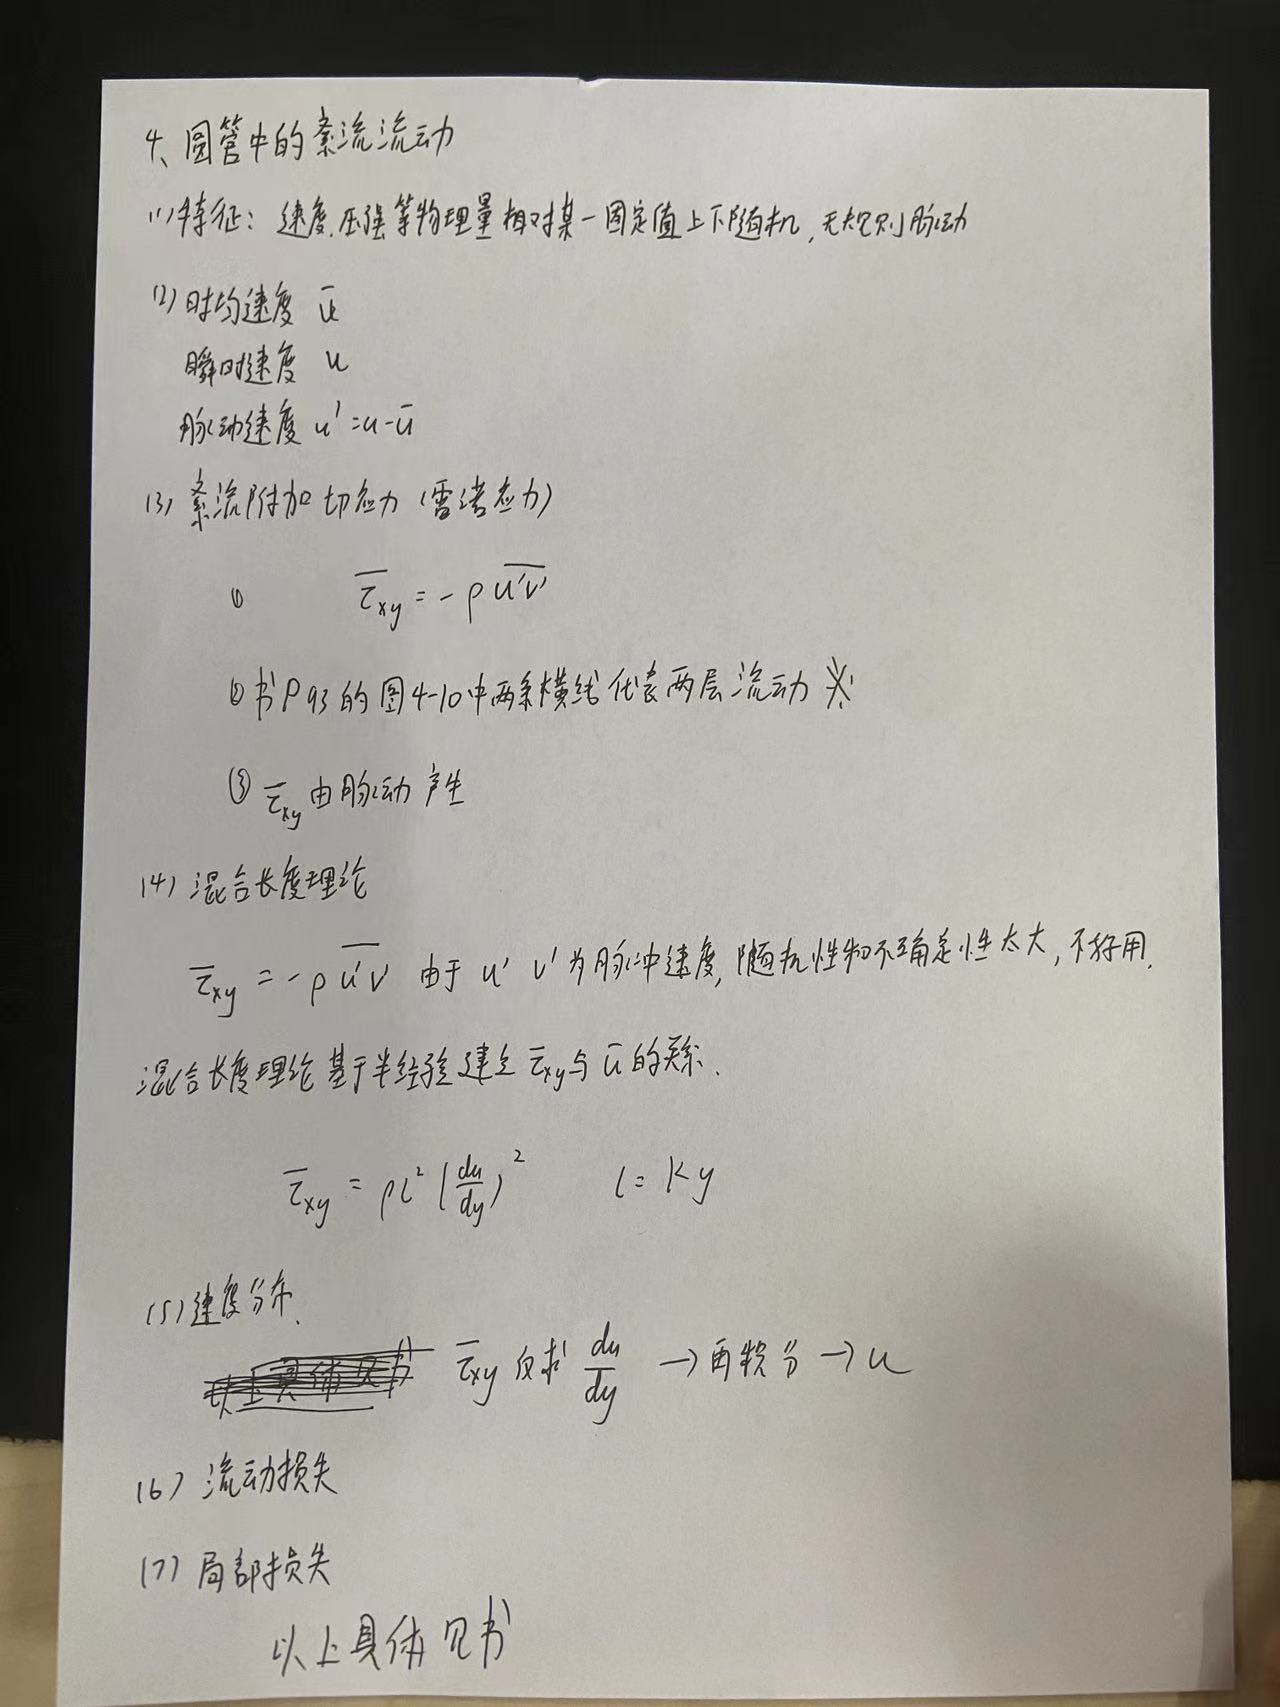 4、圆管中的紊流流动
(1)特征：速度、压强等物理量相对某一固定值上下随机，无规则脉动
(2)时均速度 ū
瞬时速度 u
脉动速度 u'=u-ū
(3) 紊流附加切应力（雷诺应力）
① τ̅xy = -ρu̅'̅v̅'̅
② 书P93的图4-10中两条横线代表两层流动 ※
③ τ̅xy由脉动产生
(4) 混合长度理论
τ̅xy = -ρu̅'̅v̅'̅ 由于 u' v' 为脉冲速度，随机性和不确定性太大，不好用.
混合长度理论基于半经验建立 τ̅xy与 ū 的关系.
τ̅xy = ρl²(du/dy)² l = ky
(5) 速度分布.
以上具体见书 τ̅xy 反求 du/dy → 再积分 → u
(6) 流动损失
(7) 局部损失
以上具体见书